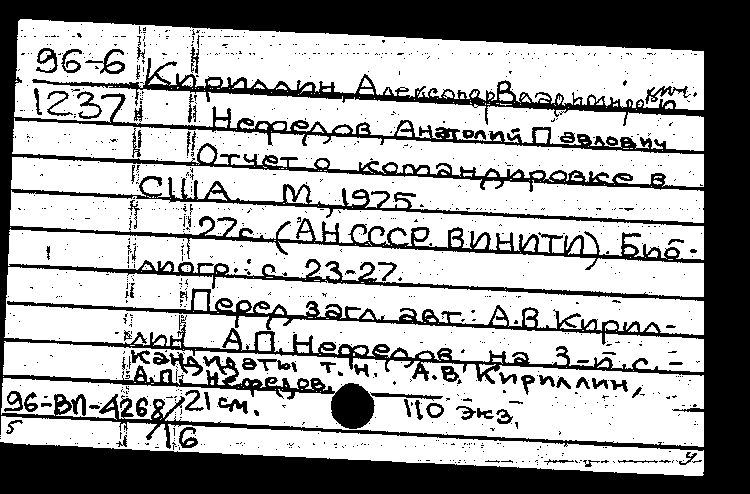 96-6 Кириллин, Александр Владимирович
1237 Нефедов, Анатолий Павлович
Отчет о командировке в
США. М., 1975.
27с. (АН СССР. ВИНИТИ). Биб-
лиогр.: с. 23-27.
Перед загл. авт.: А.В. Кирил-
лин, А.П. Нефедов; на 3-й с. -
кандидаты т.н. А.В. Кириллин,
А.П. Нефедов.
96-ВП-4268/16 21 см. 110 экз.
5